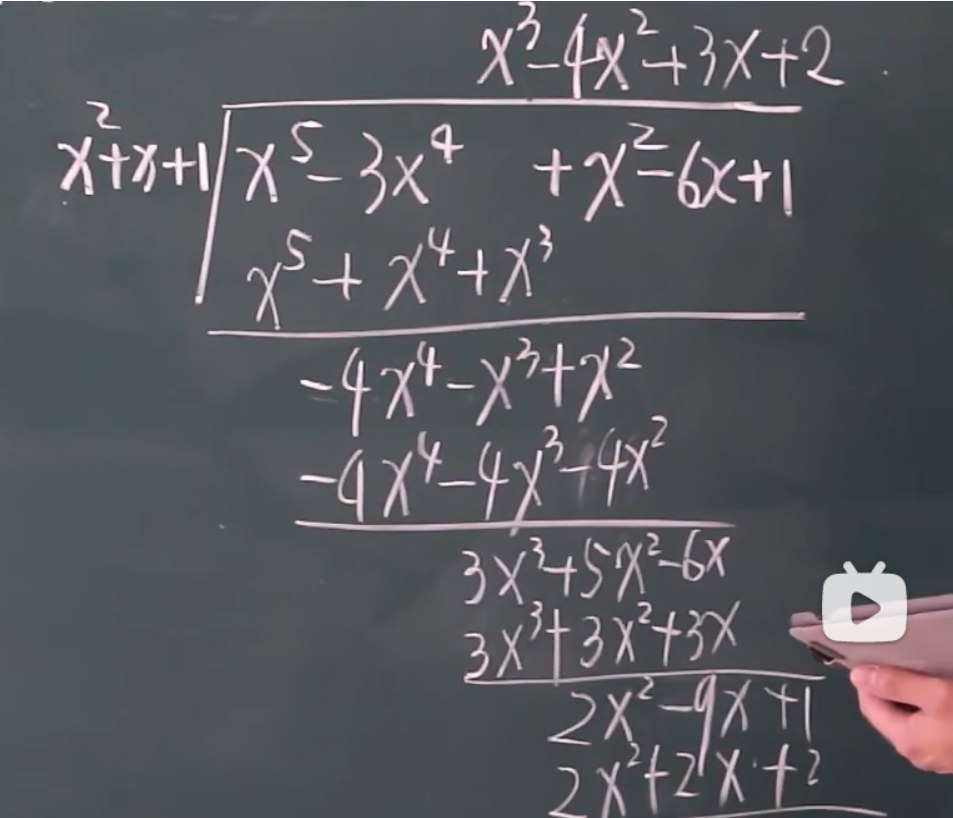 x³-4x²+3x+2
x²+x+1 x⁵-3x⁴ +x²-6x+1
x⁵+x⁴+x³
-4x⁴-x³+x²
-4x⁴-4x³-4x²
3x³+5x²-6x
3x³+3x²+3x
2x²-9x+1
2x²+2x+2